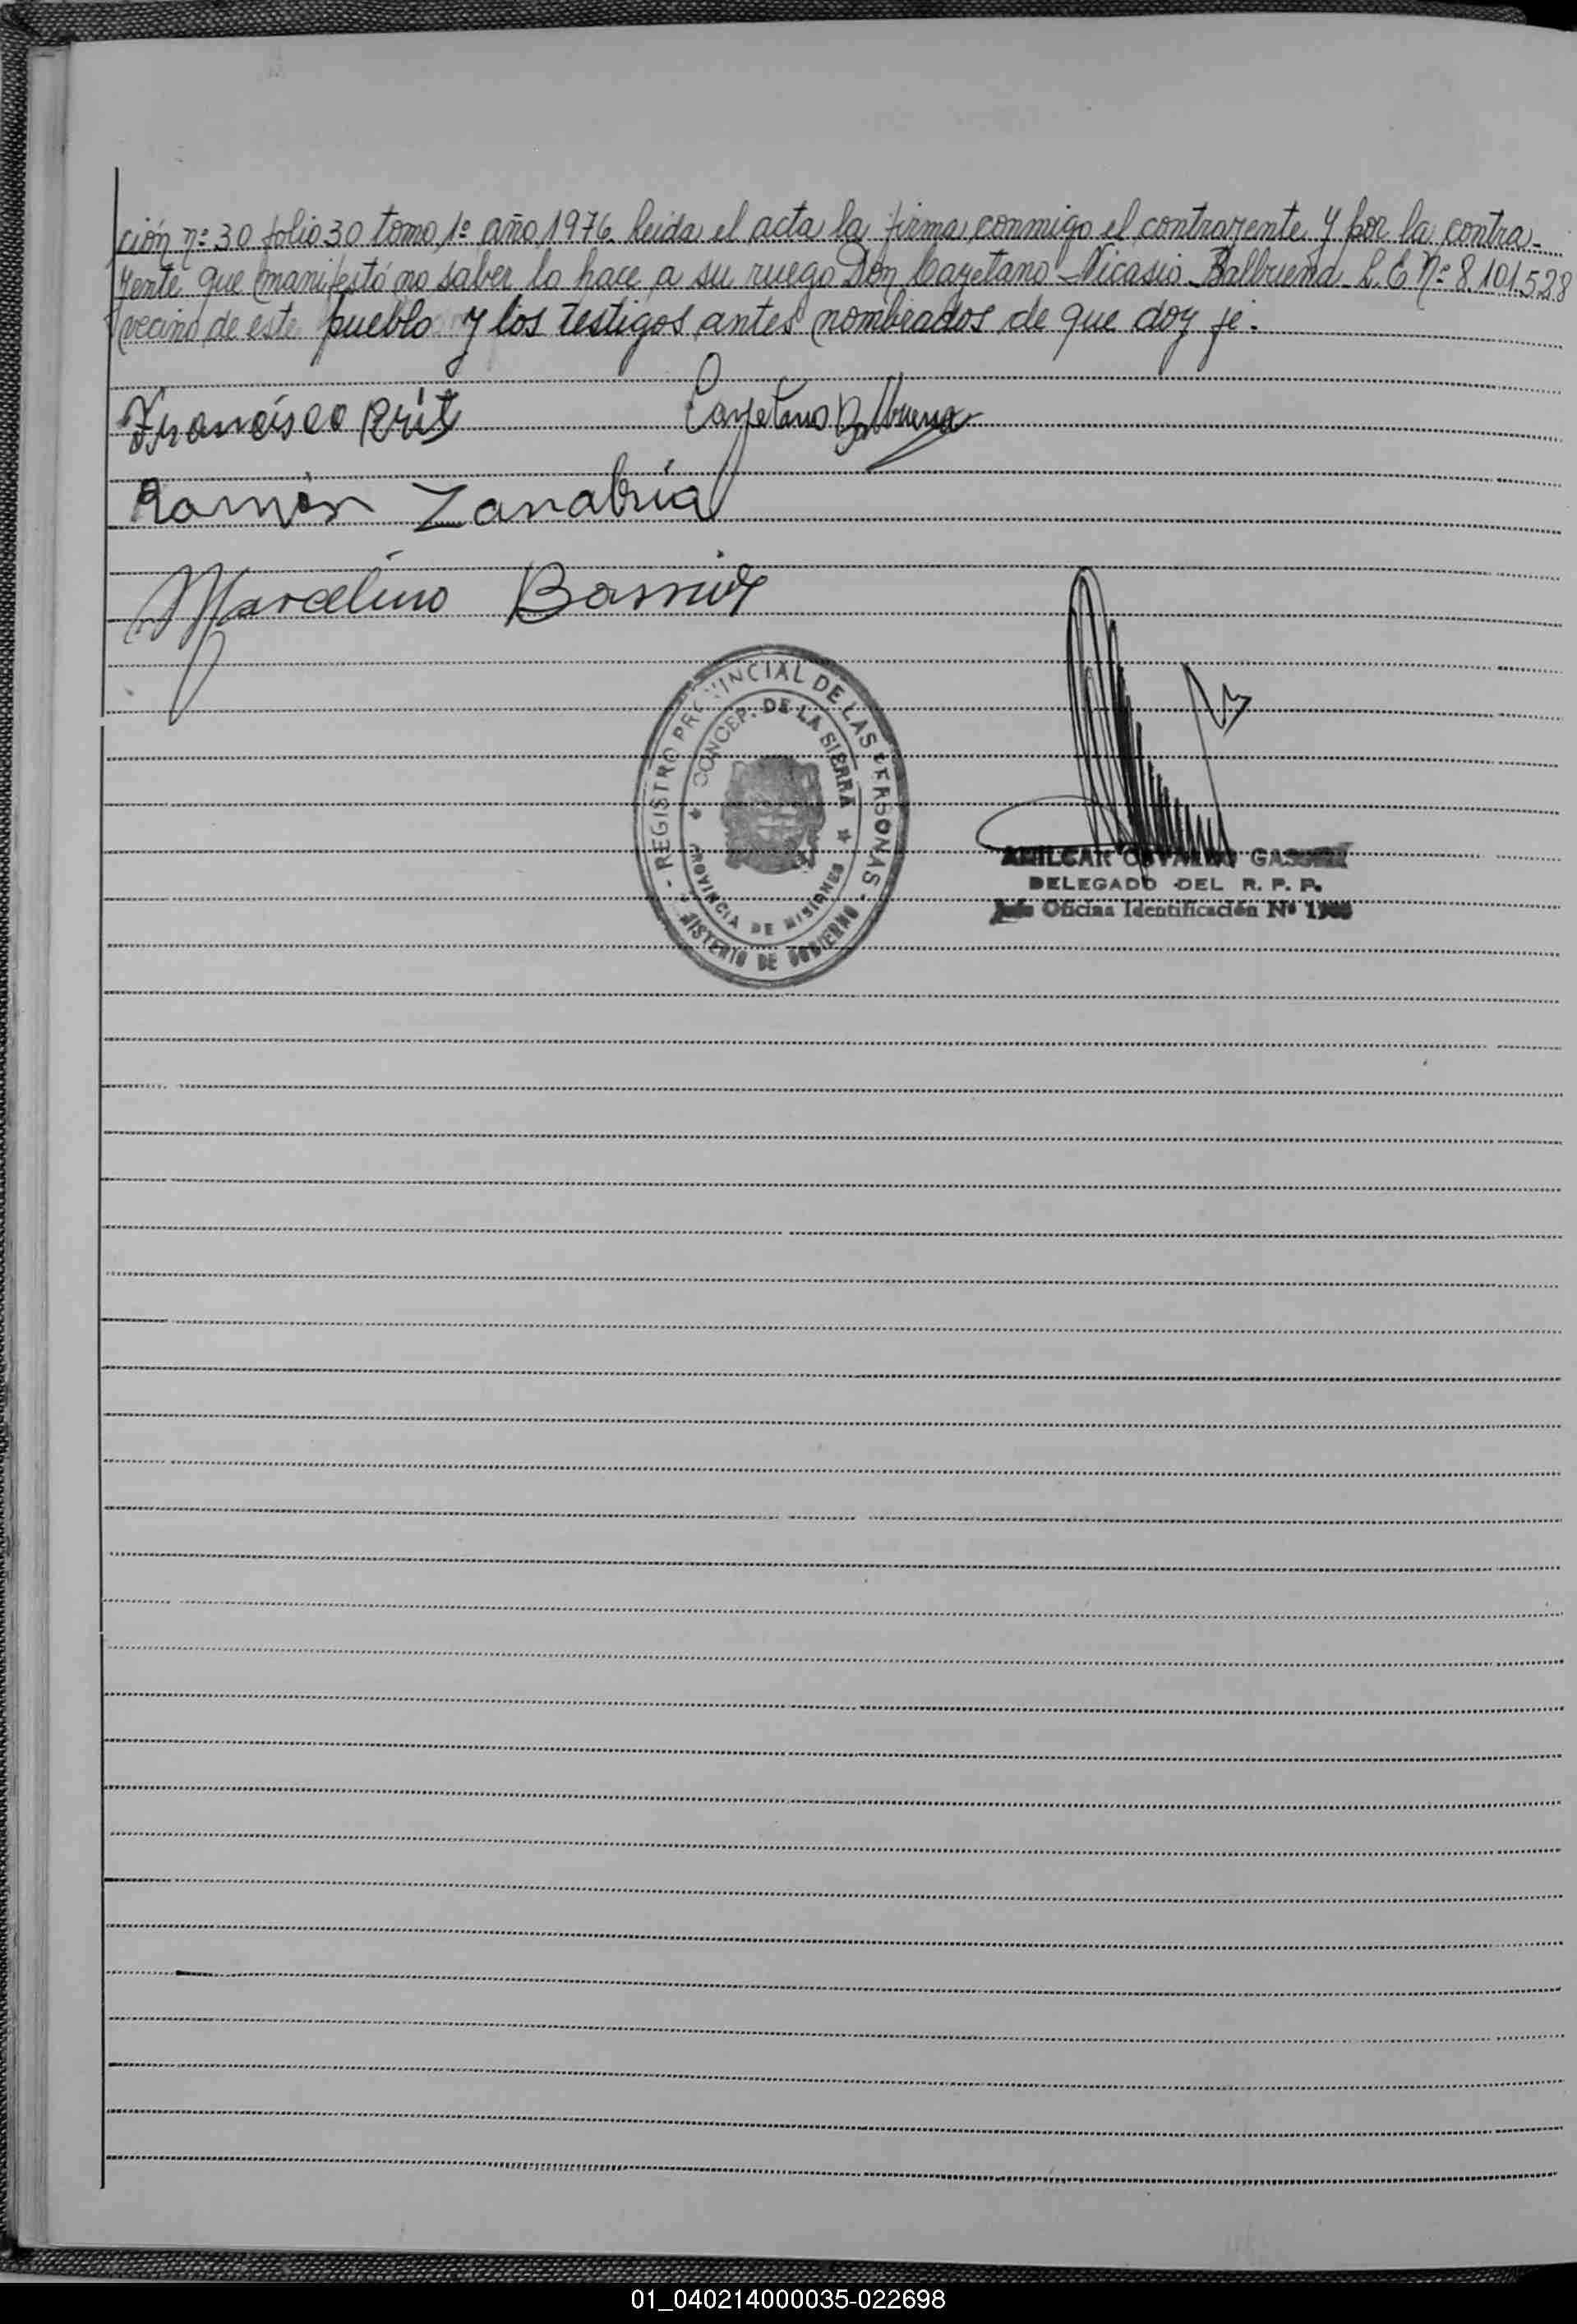 ción nº 30 folio 30 tomo 1º año 1976. Leida el acta la firma conmigo el contrayente y por la contra-
yente que manifestó no saber lo hace a su ruego Don Cayetano Nicasio Balbuena L.E. Nº 8.101.528
vecino de este pueblo y los testigos antes nombrados de que doy fé.
Francisco
Cayetano Balbuena
Ramón Zanabria
Marcelino
REGISTRO PROVINCIAL DE LAS PERSONAS
CONCEP. DE LA SIERRA
PROVINCIA DE MISIONES
MISTERIO DE GOBIERNO
AMILCAR OSVALDO
DELEGADO DEL R. P. P.
Jefe Oficina Identificación Nº
01_040214000035-022698